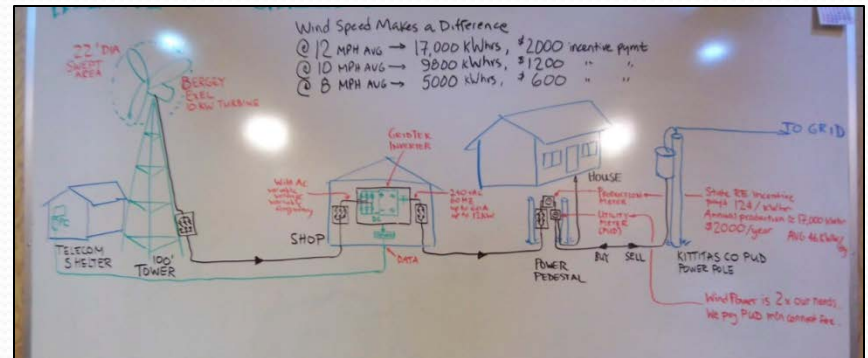 Wind Speed Makes a Difference
@ 12 MPH AVG → 17,000 KWhrs, $2000 incentive pymt
@ 10 MPH AVG → 9800 KWhrs, $1200 " "
@ 8 MPH AVG → 5000 KWhrs, $600 " "
22' DIA
SWEPT
AREA
BERGEY
EXEL
10KW TURBINE
TELECOM
SHELTER
100'
TOWER
Wild AC
variable
voltage
variable
frequency
GRIDTEK
INVERTER
DC
240 VAC
60HZ
up to 12KW
SHOP
DATA
HOUSE
PRODUCTION
METER
UTILITY
METER
(PUD)
POWER
PEDESTAL
BUY SELL
TO GRID
State RE Incentive
pays 12¢/KWhr
Annual production ≅ 17,000 KWhr
$2000/year
KITTITAS CO PUD
POWER POLE
Wind Power is 2x our needs.
We pay PUD min connect fee.